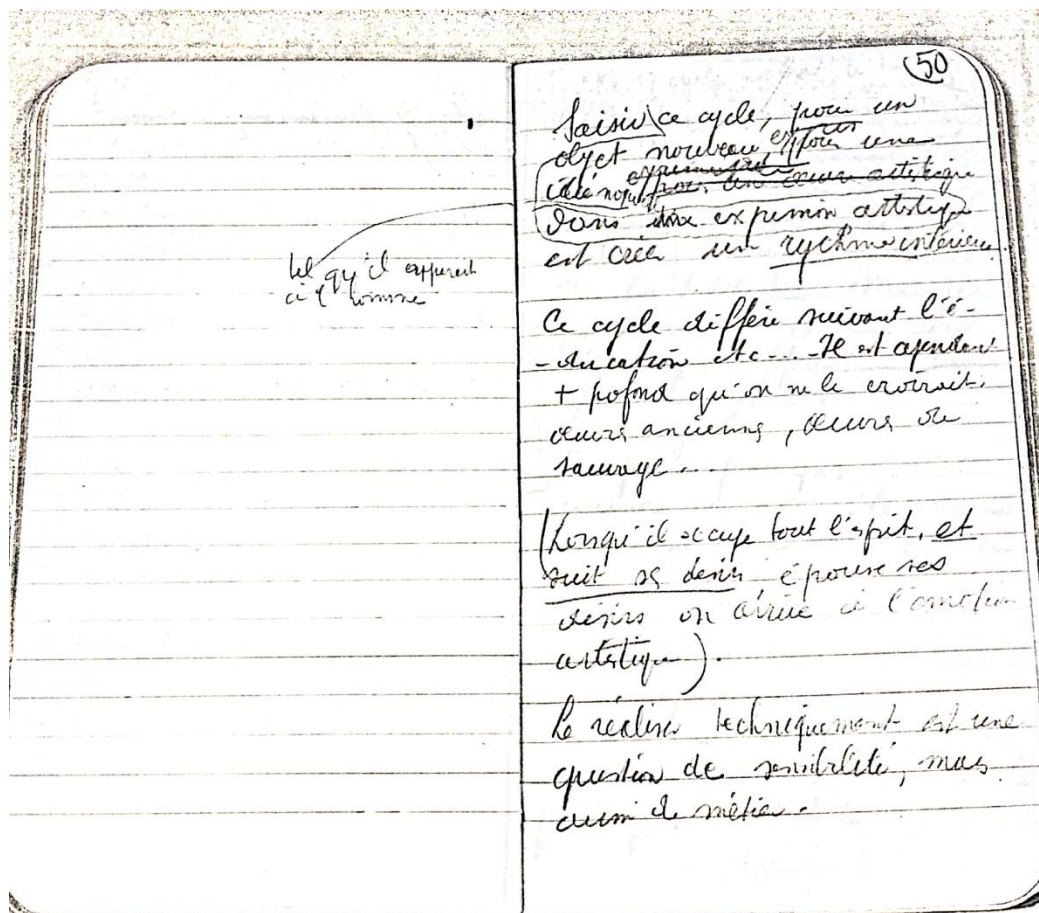 tel qu'il apparait
à l'homme
50
Saisir ce cycle, pour un
objet nouveau et pour une
exprimer
idée nouvelle pour une œuvre artistique
dans une expression artistique
est créer un rythme intérieur.
Ce cycle diffère suivant l'é-
-ducation etc.... Il est cependant
+ pofond qu'on ne le croirait.
œuvres anciennes, œuvres de
sauvage....
(Lorsqu'il occupe tout l'esprit, et
suit ses desirs épouse ses
désirs on arrive à l'emotion
artistique).
Le réaliser techniquement est une
question de sensibilité, mais
aussi de métier.